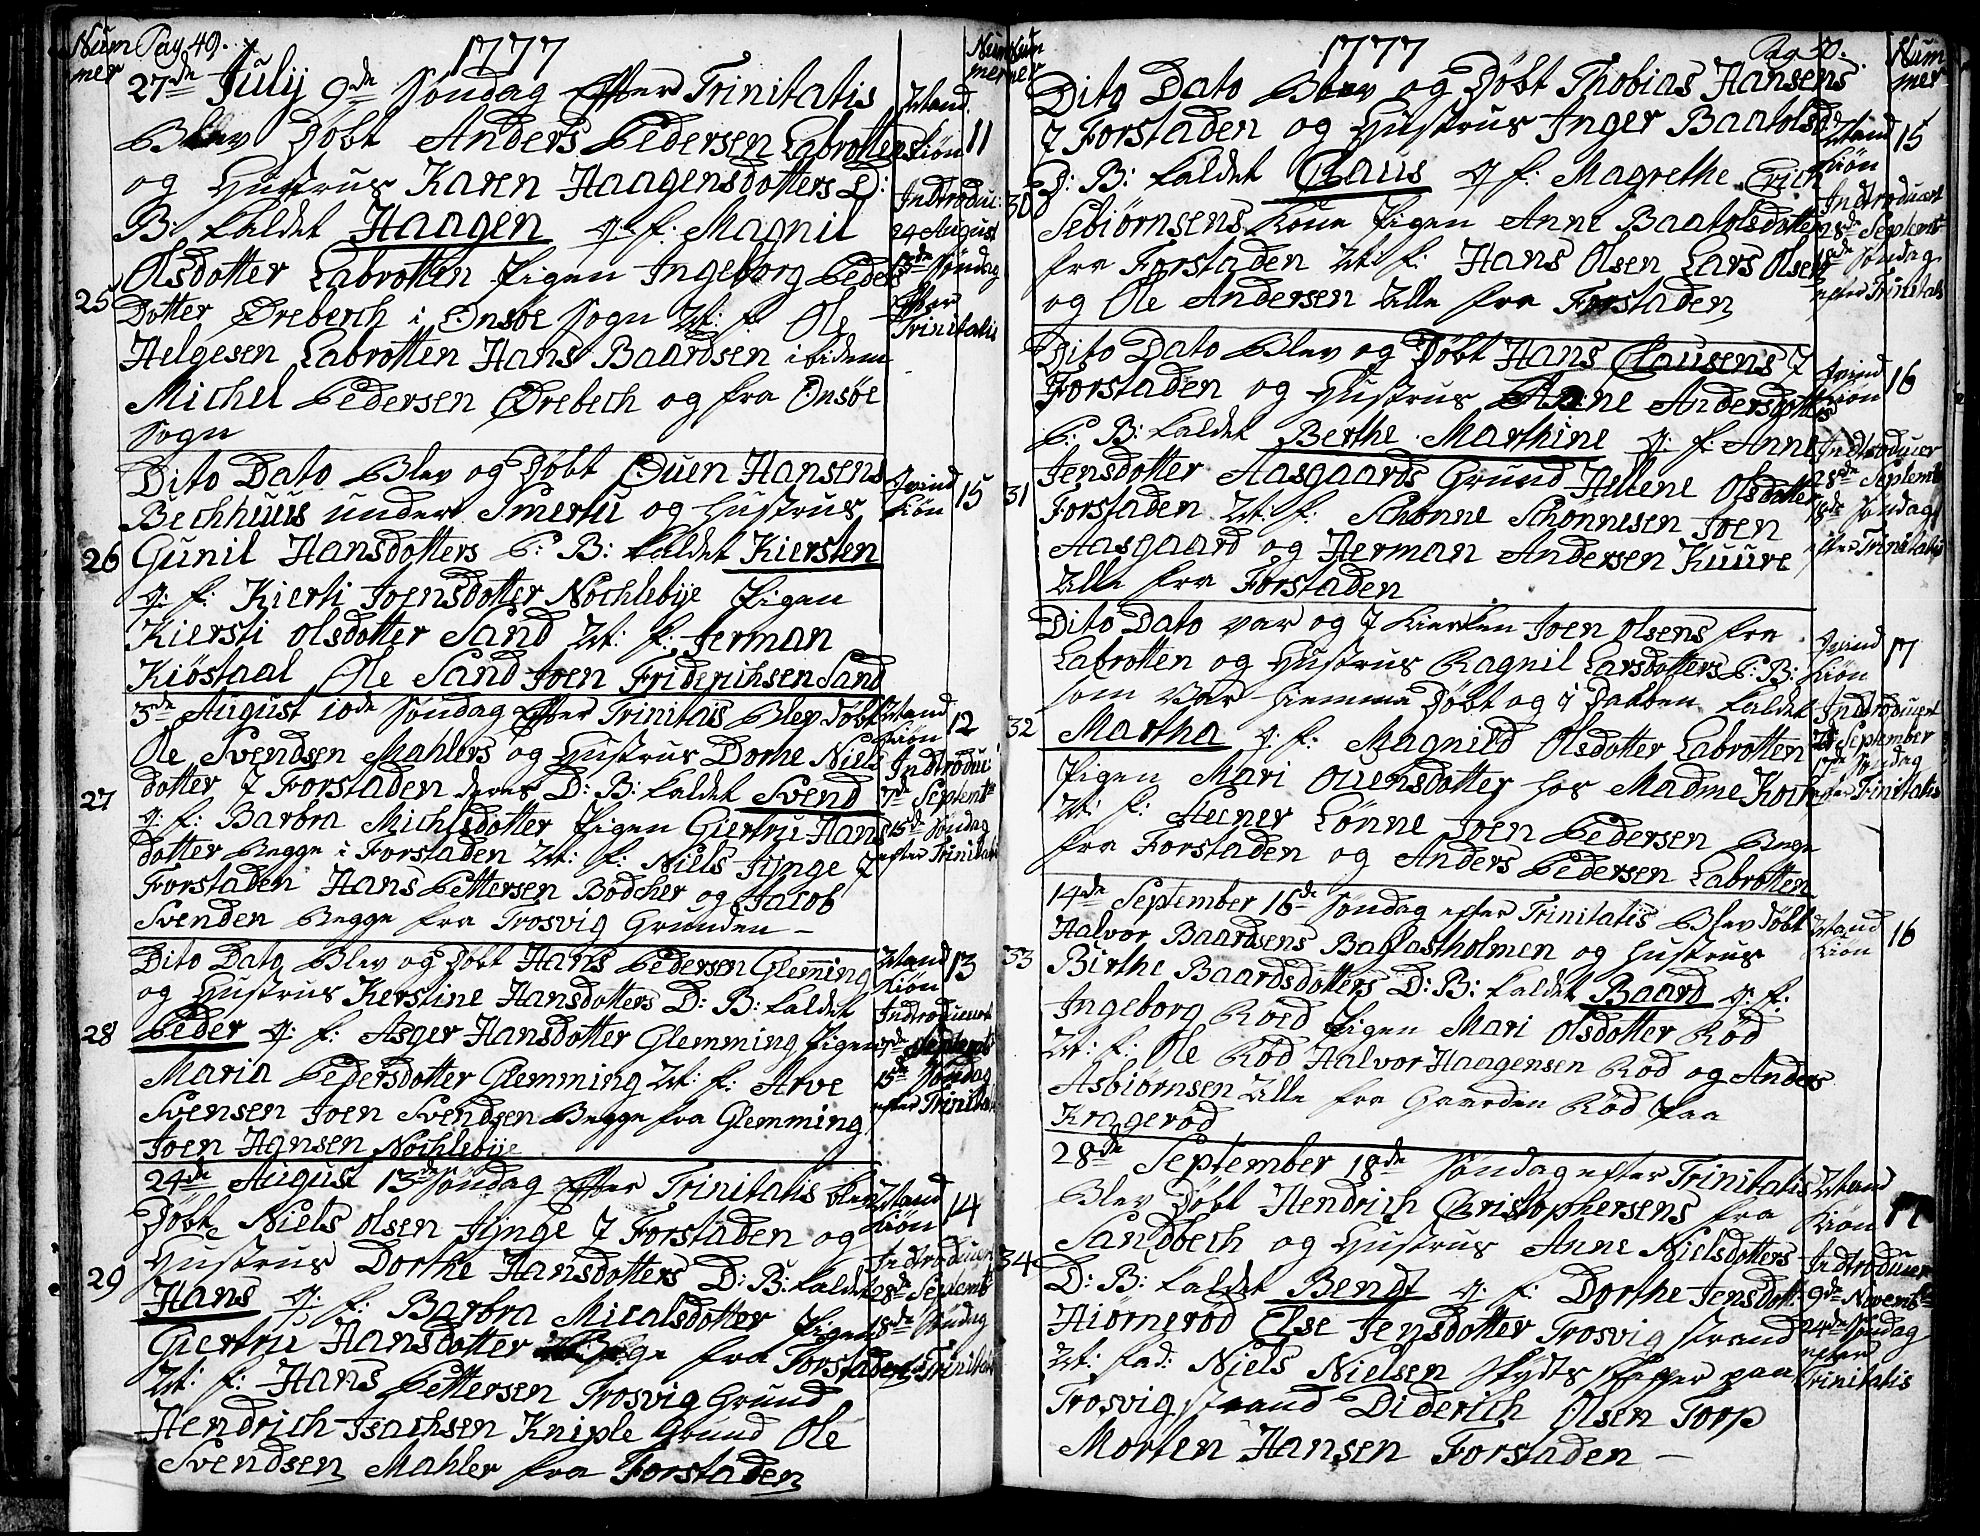 Num Pag 49.
mer
1777
Num
mer
27de Julij 9de Søndag Effter Trinitatis
Blev Døbt Anders Pedersen Labrottens
og Hustrus Karen Haagensdotters D:
B: kaldet Haagen q: f: Magnil
Olsdotter Labrotten Pigen Ingeborg Peders
25
Dotter Ørebech i Onsøe Sogn Vt: f: Ole
Helgesen Labrotten Hans Baardsen ibidem
Michel Pedersen Ørebech og fra Onsøe
Sogn
Mand
Kiøn 11
Indtroduc:
24 August
13de Søndag
efter
Trinitatis
Dito Dato Blev og Døbt Ouen Hansens
Bechhuus under Smertu og Hustrus
26 Gunil Hansdotters P: B: kaldet Kiersten
q: f: Kierti Joensdotter Nochlebije Pigen
Kiersti Olsdotter Sand Vt: f: Jerman
Kiöstaal Ole Sand Joen Friderichsen Sand
Qvind
Kiøn 15
3de August 10de Søndag Efter Trinitais Blev Døbt
Ole Svendsen Mahlers og Hustrus Dorhe Niels
27 dotter i Forstaden deres D: B: kaldet Svend
q: f: Barbra Michlsdotter Pigen Giertru Hans
dotter Begge i Forstaden Vt: f: Niels Jynge i
Forstaden Hans Pettersen Bödcher og Jacob
Svenden Begge fra Trosvig Grunden –
Mand
Kiøn 12
Indtroduc:
7de Septembr
15de Søndag
efter Trinitatis
Dito Dato Blev og Døbt Hans Pedersen Glemming
og Hustrus Kerstine Hansdotters D: B: kaldet
28 Peder q: f: Asger Hansdotter Glemming Pigen
Maria Pedersdotter Glemming Vt: f: Arve
Svensen Joen Svendsen Begge fra Glemming
Joen Hansen Nochlebije
Mand
Kiøn 13
Indtroducert
7de Septembr
15de Søndag
efter Trinitatis
24de August 13de Søndag Efter Trinitatis blev
Døbt Niels Olsen Jynge i Forstaden og
29 Hustrus Dorthe Hansdotters D: B: kaldet
Hans q: f: Barbra Micalsdotter Pigen
Giertru Hansdotter fra Forstaden
Vt: f: Hans Pettersen Trosvig Grund
Hendrich Isachsen Kniple Grund Ole
Svendsen Mahler fra Forstaden
Mand
Kiøn 14
Indtroducer
28de Septembr
18de Søndag
efter Trinitatis
Num
mer
1777
Pag 50.
Num
mer
Dito Dato Blev og Døbt Thobias Hansens
i Forstaden og Hustrus Inger Baatolsd:
30 D: B: kaldet Claus q: f: Magrethe Erich
Sebiørnsens Kone Pigen Anne Baatolsdotter
fra Forstaden Vt: f: Hans Olsen Lars Olsen
og Ole Andersen Alle fra Forstaden
Mand
Kiøn 15
Indtroducert
28de Septemr
18de Søndag
efter Trinitatis
Dito Dato Blev og Døbt Hans Clausens i
Forstaden og Hustrus Anne Andersdotters
P: B: kaldet Berthe Marthine q: f: Anne
31 Jensdotter Aasgaards Grund Hellene Olsdotter
Forstaden Vt: f: Schonne Schonnesen Joen
Aasgaard og Herman Andersen Kuure
Alle fra Forstaden
Qvind
Kiøn 16
Indtroducer
28de Septembr
18de Søndag
efter Trinitatis
Dito Dato var og i Kierken Joen Olsens fra
Labrotten og Hustrus Ragnil Larsdotters P: B:
som var hiemma Døbt og i Daaben kaldet
32 Martha q: f: Magnild Olsdotter Labrotten
Pigen Mari Ouensdotter hos Madme Koch
Vt: f: Heiner Lønne Joen Pedersen Begge
fra Forstaden og Anders Pedersen Labrotten
Qvind
Kiøn 17
Indtroducert
September
Søndag
efter Trinitatis
14de September 16de Søndag efter Trinitatis Blev Døbt
Halvor Baardsens Baglastholmen og Hustrus
33 Birthe Baardsdotters D: B: kaldet Baard q: f:
Ingeborg Roed Pigen Mari Olsdotter Röd
Vt: f: Ole Röd Halvor Haagensen Röd og Anders
Asbiørnsen Alle fra Gaarden Röd paa
Kragerød
Mand
Kiøn 16
28de September 18de Søndag efter Trinitatis
Blev Døbt Hendrich Christophersens fra
Sandbech og Hustrus Anne Nielsdotters
34 D: B: kaldet Bendt q: f: Dorthe Jensdott:
Hiørnerød Else Jensdotter Trosvig strand
Vt: fad: Niels Nielsen Skydts skaffer paa
Trosvig strand Diderich Olsen Torp
Morten Hansen Forstaden –
Mand
Kiøn 17
Indtroducer
9de Novembr
24de Søndag
efter
Trinitatis